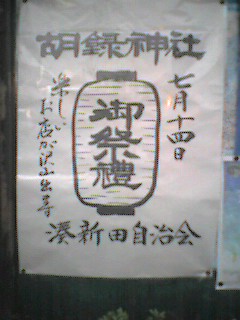 胡録神社
七月十四日
御祭禮
楽しい
お店が沢山出ます
湊新田自治会